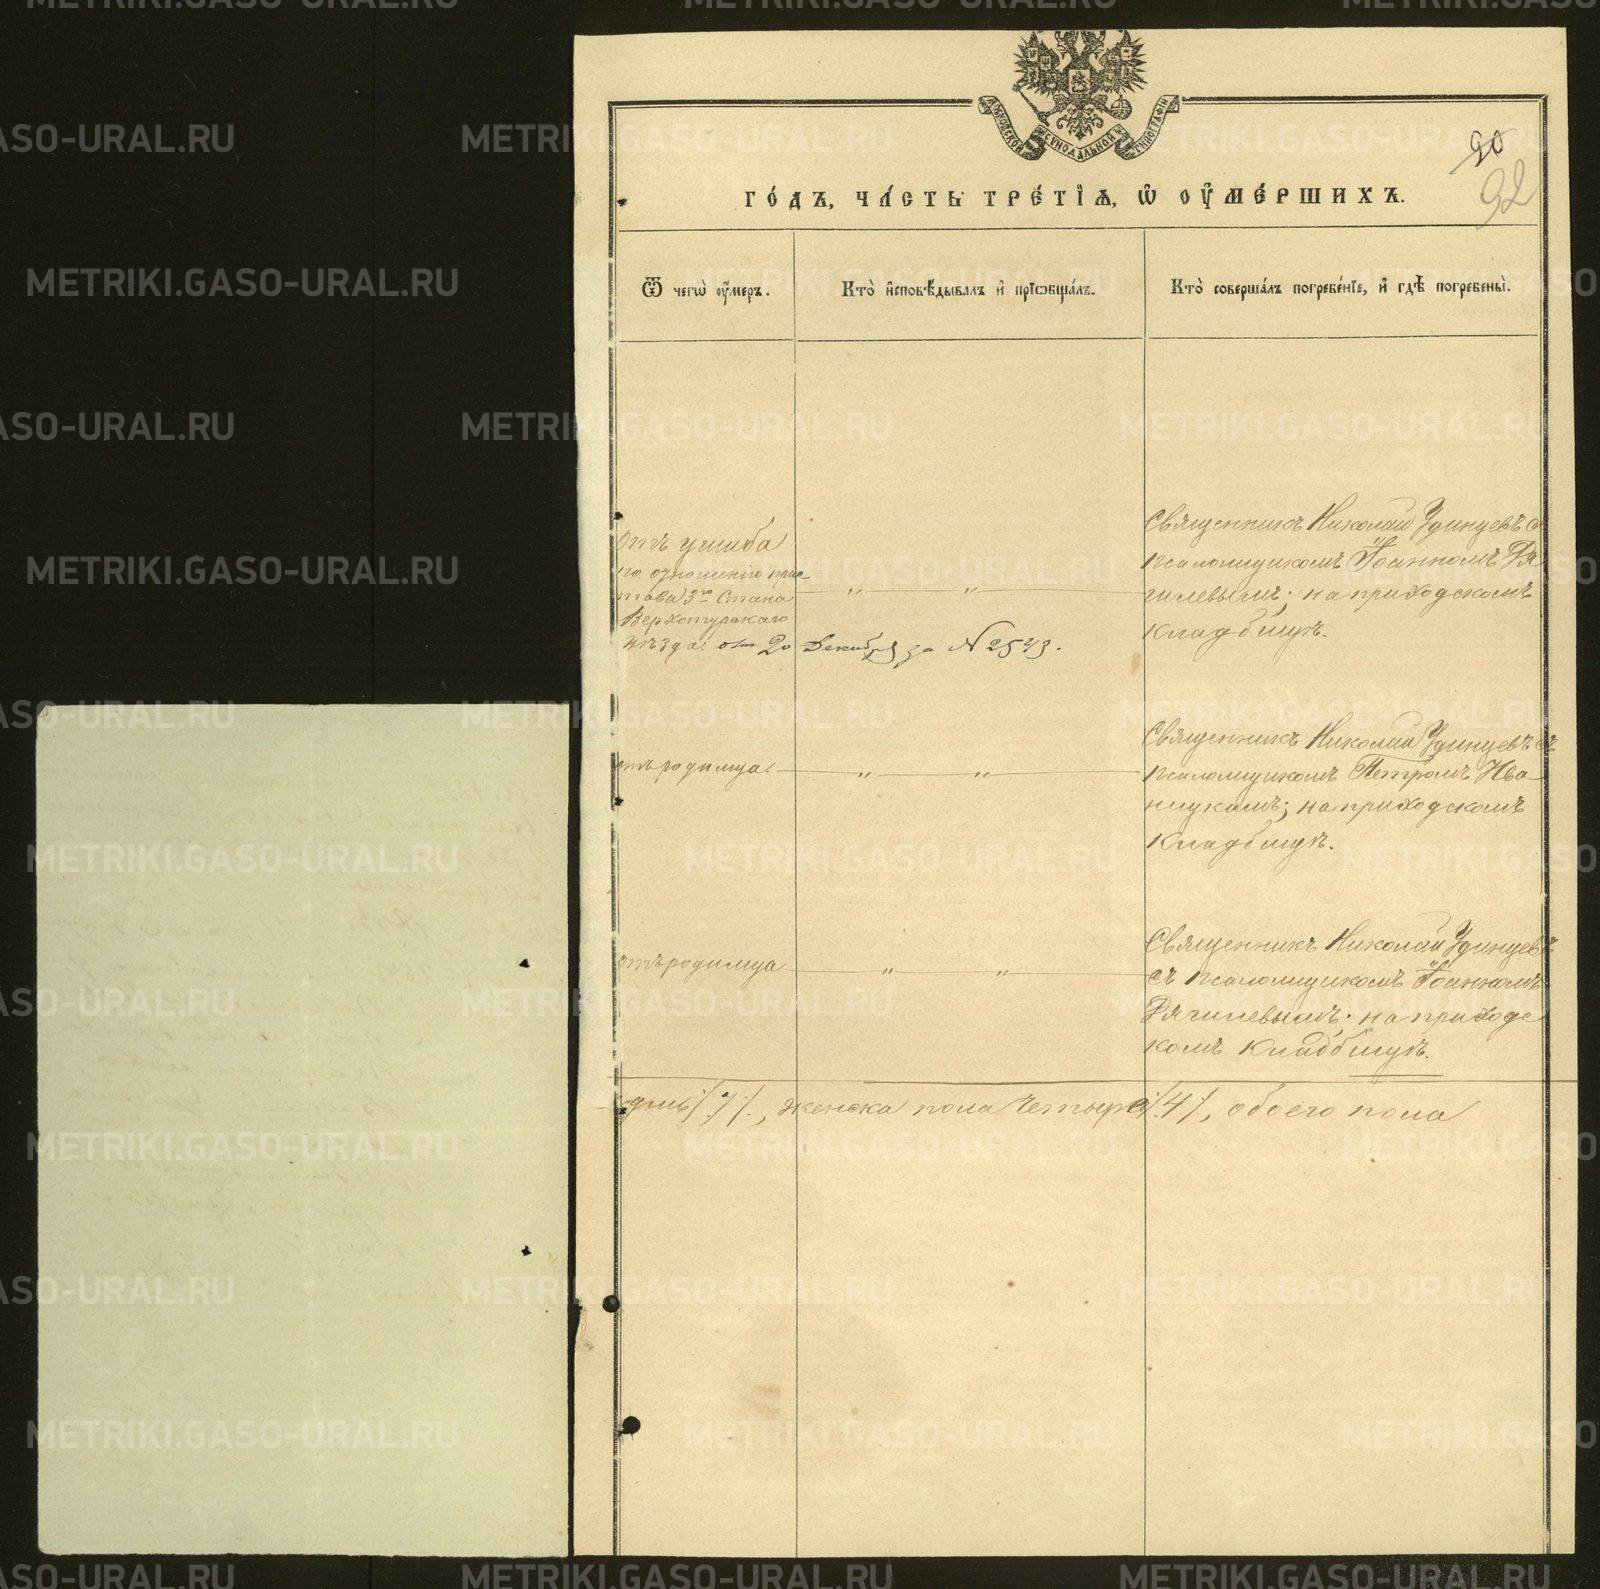 МОСКОВСКОЙ СУНОДАЛЬНОЙ ТИПОГРАФІИ
90
92
ГО́ДЪ, ЧА́СТЬ ТРЕ́ТІѦ, Ѡ҆ ОУ҆МЕ́РШИХЪ.
Ѿ чегѡ̀ оу҆́меръ.
Кто̀ и҆сповѣ́дывалъ и҆ прїѡбща́лъ.
Кто̀ соверша́лъ погребе́нїе, и҆ гдѣ̀ погребены̀.
отъ ушиба
по отношенію прис
тава 3го Стана
Верхотурскаго
уѣзда: отъ 20 Декабря за № 2543.
Священникъ Николай Удинцевъ съ
псаломщикомъ Іоанномъ Дя
гилевымъ: на приходскомъ
кладбищѣ.
отъ родимца.
Священникъ Николай Удинцевъ съ
псаломщикомъ Петромъ Ива
ницкимъ; на приходскомъ
кладбищѣ.
отъ родимца
Священникъ Николай Удинцевъ
съ псаломщикомъ Іоанномъ
Дягилевымъ: на приходс
комъ кладбищѣ.
женска пола четыре /4/, обоего пола
METRIKI.GASO-URAL.RU